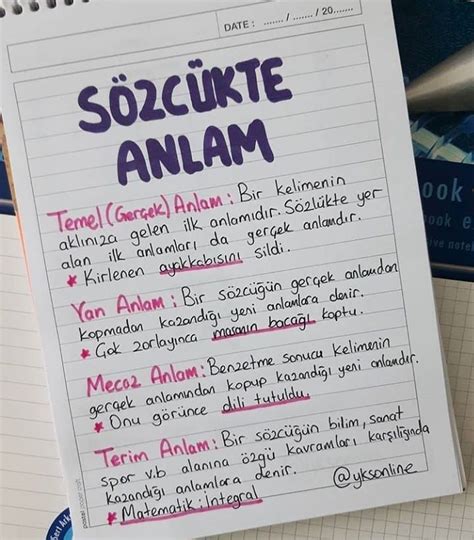 DATE : ....... / ....... / 20.......
SÖZCÜKTE
ANLAM
Temel (Gerçek) Anlam : Bir kelimenin
aklınıza gelen ilk anlamıdır. Sözlükte yer
alan ilk anlamları da gerçek anlamdır.
* Kirlenen ayakkabısını sildi.
Yan Anlam : Bir sözcüğün gerçek anlamdan
kopmadan kazandığı yeni anlamlara denir.
* Çok zorlayınca masanın bacağı koptu.
Mecaz Anlam : Benzetme sonucu kelimenin
gerçek anlamından kopup kazandığı yeni anlamdır.
* Onu görünce dili tutuldu.
Terim Anlam : Bir sözcüğün bilim, sanat
spor v.b alanına özgü kavramları karşılığında
kazandığı anlamlara denir.
* Matematik : İntegral
@yksonline
ook
ook e